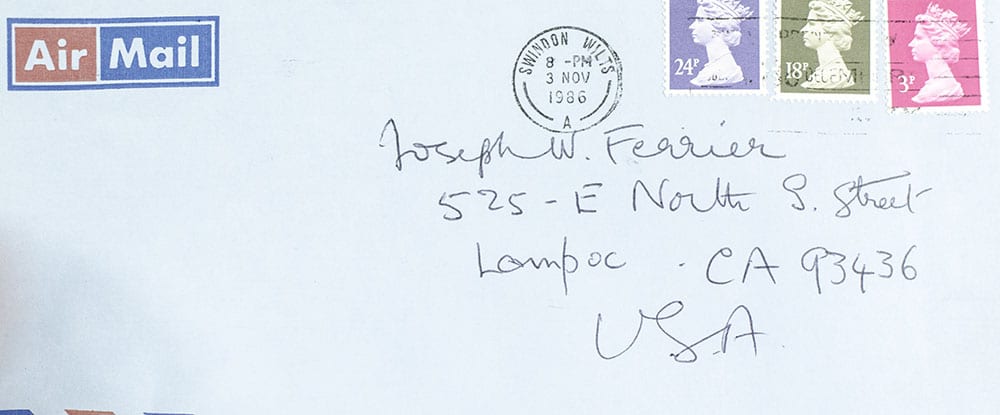 Air Mail
SWINDON WILTS
8 -PM
3 NOV
1986
A
24P
18P
3P
Joseph W. Ferrier
525 - E North S. Street
Lompoc . CA 93436
USA.